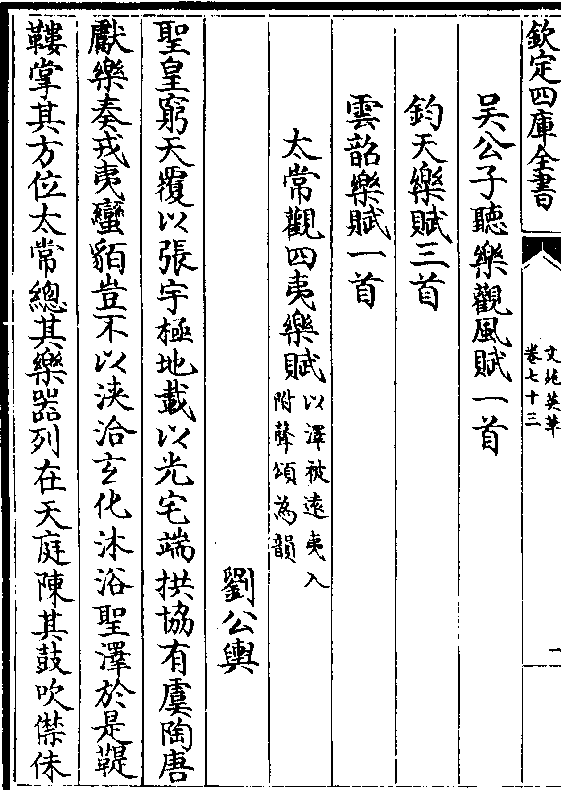 欽定四庫全書
文苑英華
卷七十三
一
吴公子聽樂觀風賦一首
鈞天樂賦三首
雲韶樂賦一首
太常觀四夷樂賦以澤被遠夷入
附聲頌為韻
劉公輿
聖皇窮天覆以張宇極地載以光宅端拱協有虞陶唐
獻樂奏戎夷蠻貊豈不以浹洽玄化沐浴聖澤於是鞮
鞻掌其方位太常總其樂器列在天庭陳其鼓吹僸佅